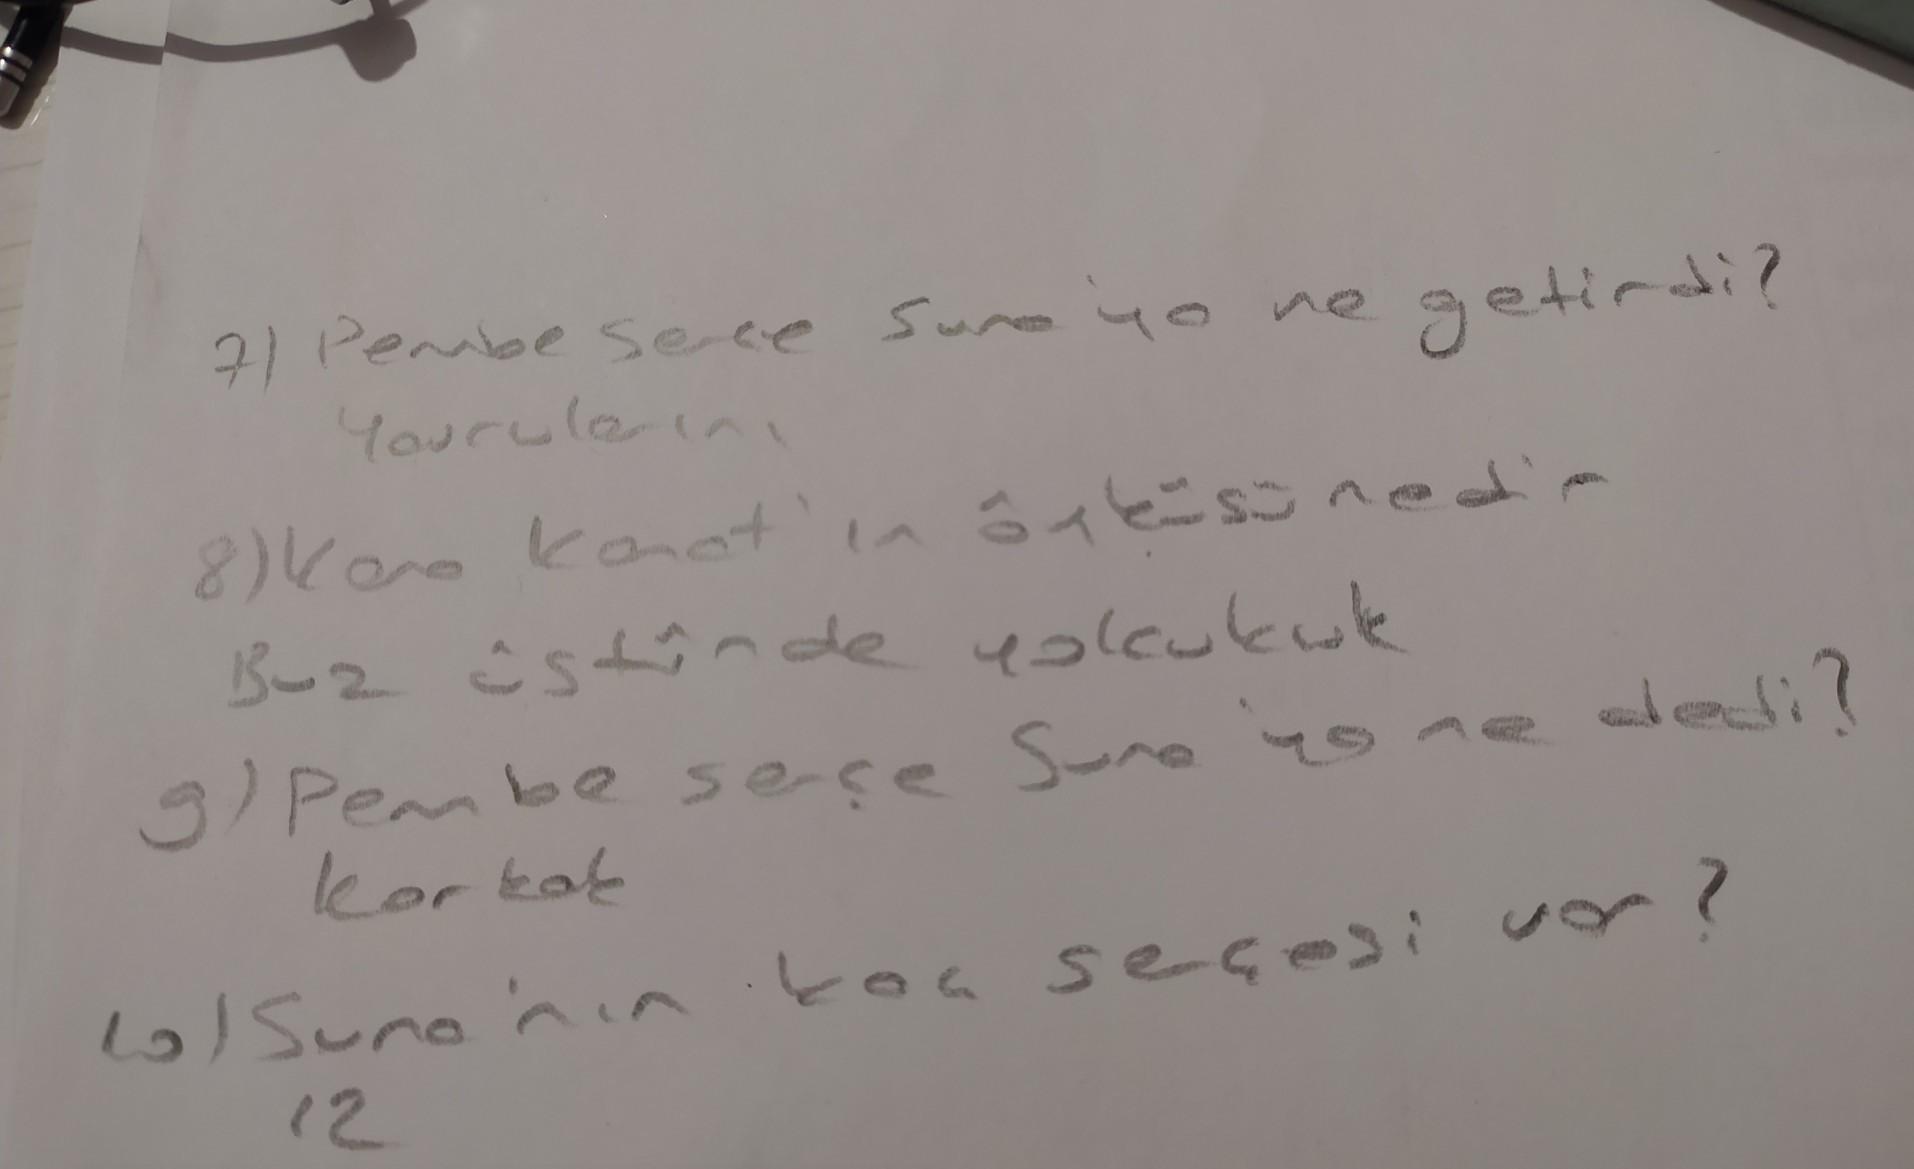 7) Pembe serçe Suna'ya ne getirdi?
Yavrularını
8) Kara Kanat'ın öyküsü nedir
Buz üstünde yolcukuk
9) Pembe serçe Suna'ya ne dedi?
korkak
10) Suna'nın kaç serçesi var?
12